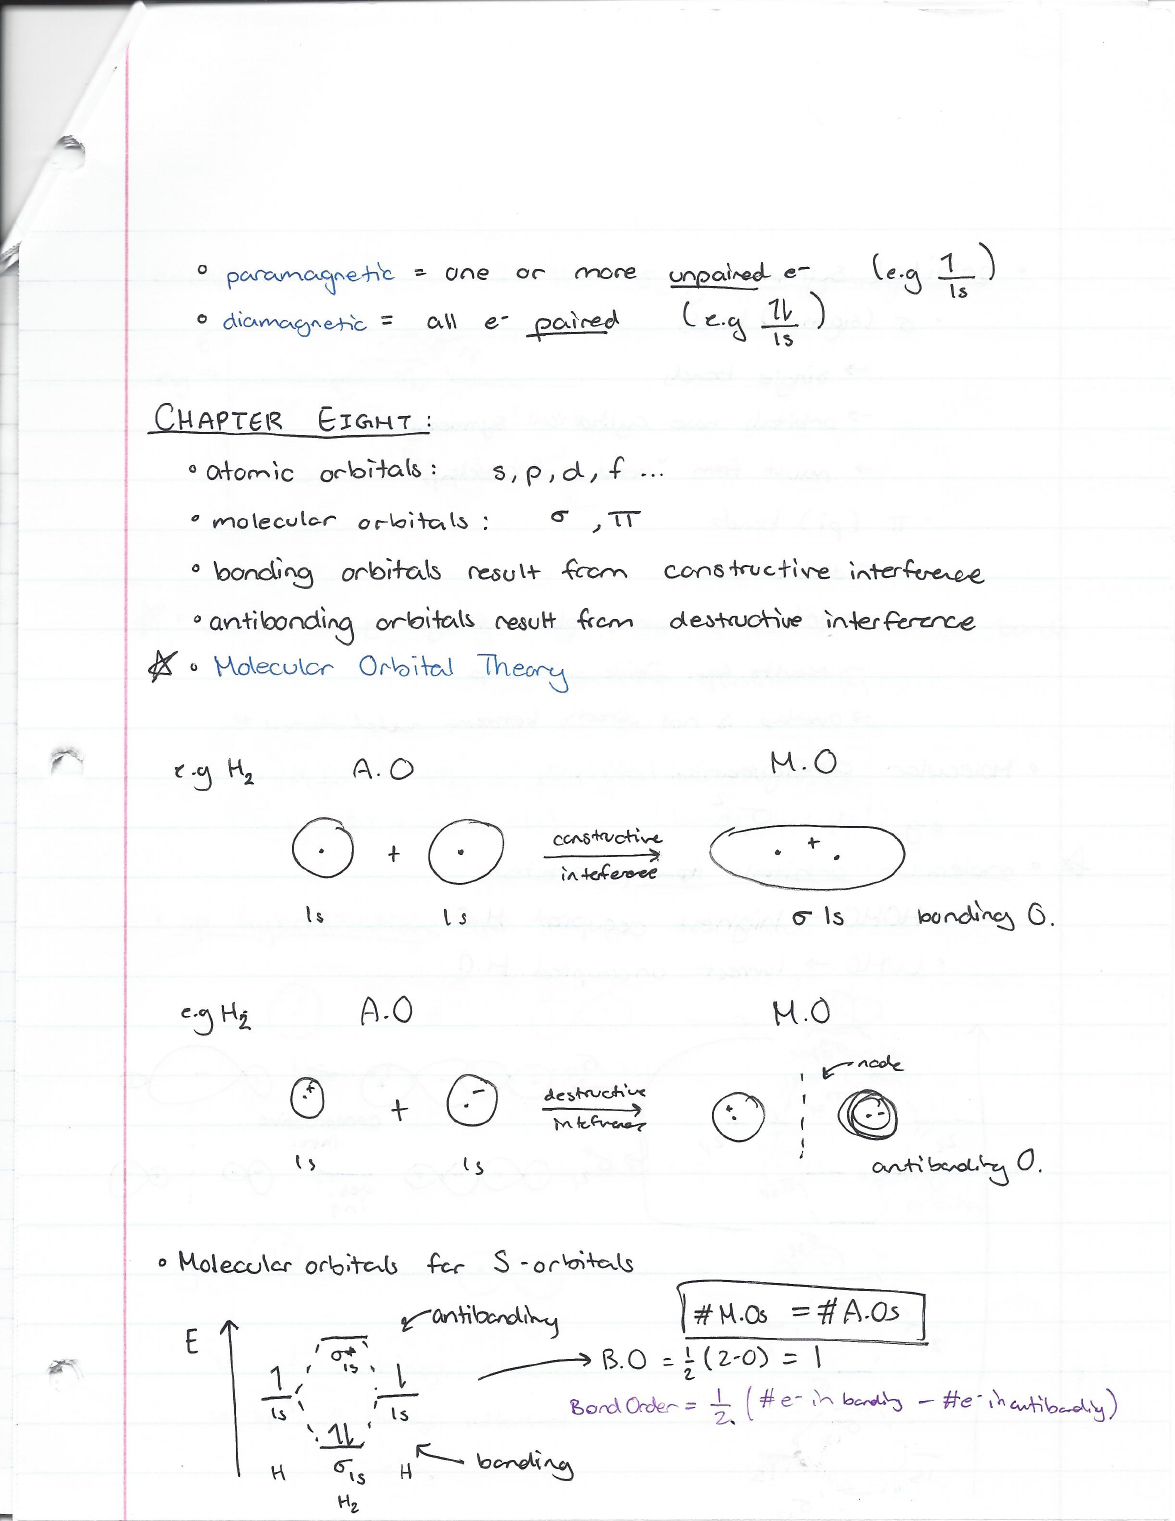 ° paramagnetic = one or more unpaired e- (e.g 1 1s)
° diamagnetic = all e- paired (e.g 1l 1s)
CHAPTER EIGHT:
° atomic orbitals: s, p, d, f ...
° molecular orbitals: σ, π
° bonding orbitals result from constructive interference
° antibonding orbitals result from destructive interference
☆ ° Molecular Orbital Theory
e.g H₂ A.O M.O
+ constructive +
inteferece
1s 1s σ 1s bonding O.
e.g H₂ A.O M.O
node
+ + - destructive + -
1s 1s antibonding O.
° Molecular orbitals for S-orbitals
antibonding #M.Os = #A.Os
E σ*1s B.O = ½(2-0) = 1
1 1s l 1s Bond Order = ½ (#e- in bonding - #e- in antibonding)
1l
H σ1s H bonding
H₂